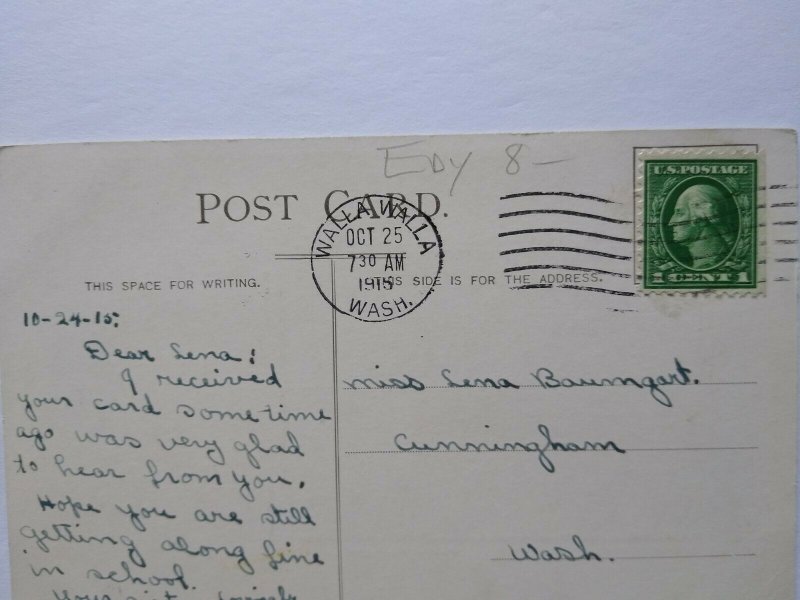 EDY 8-
POST CARD.
WALLA WALLA
OCT 25
7 30 AM
1915
WASH.
U.S. POSTAGE
1 CENT 1
THIS SPACE FOR WRITING.
THIS SIDE IS FOR THE ADDRESS.
10-24-15;
Dear Lena;
I received
your card sometime
ago was very glad
to hear from you.
Hope you are still
getting along fine
in school.
Miss Lena Baumgart.
Cunningham
Wash.